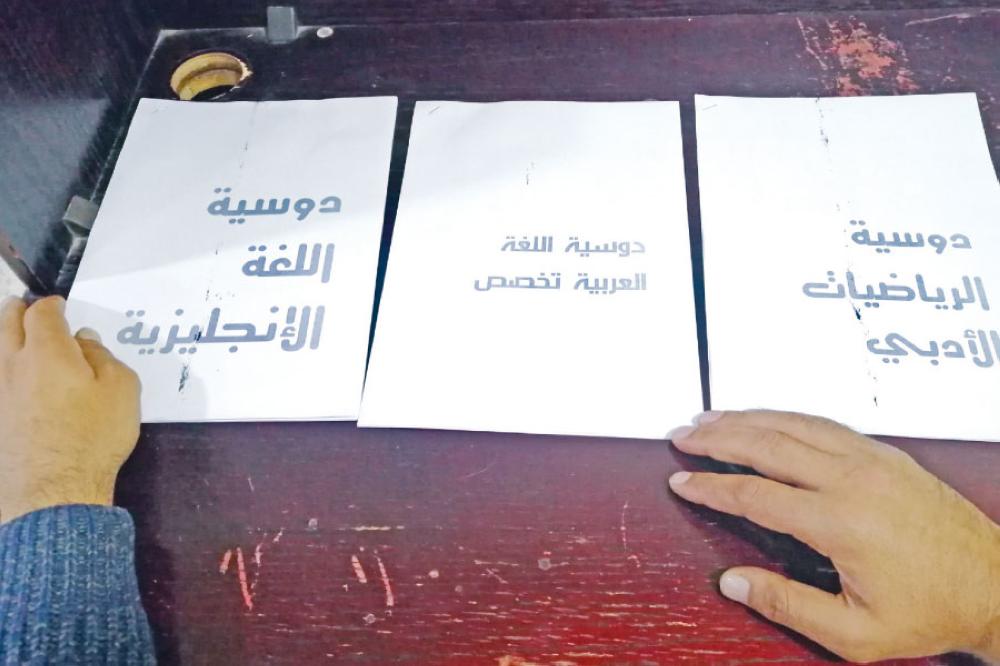 دوسية
الرياضيات
الأدبي
دوسية اللغة
العربية تخصص
دوسية
اللغة
الإنجليزية